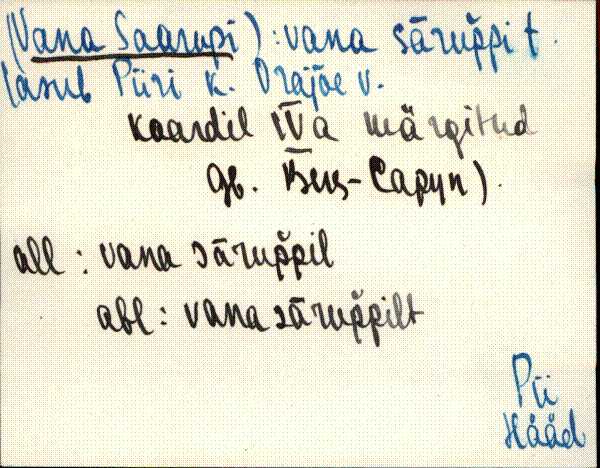 (Vana Saarupi) : vana sārup̆pi t.
asub Piiri k. Orajõe v.
kaardil IVa märgitud
Capyn).
all : vana sārup̆pil
abl : vana sārup̆pilt
Pii
Hääd